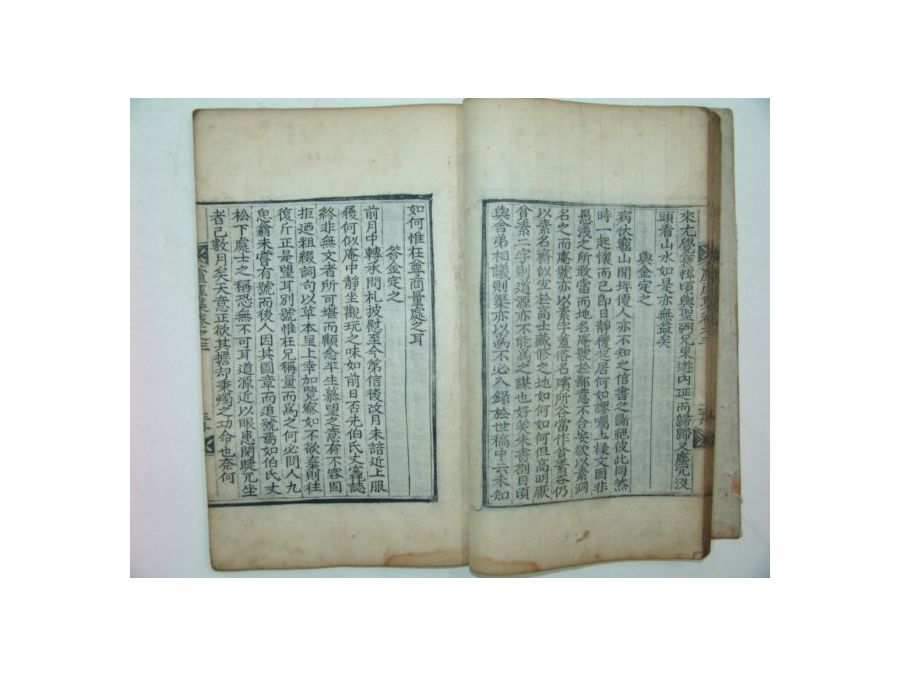 來尤覺塞楫頃與聖弼兄東遊內延而歸歸又塵冗沒
頭看山水如是亦無益矣
與金定之
病伏窮山開坪僾人亦不知之信書之斷絕彼此同然
時一起懷而已卽日靜僾起居何如謬囑上樑文固非
愚淺之所敢當而地名庵號於鄙意不合矣欲以素洞
名之而庵號亦以素字蓋俗名殯所谷當作昔素谷仍
以素名齋似宜於高士藏修之地如何如何但高明厭
貧素二字則道源亦不能爲之謀也好笑朱書剳目頃
與舍弟相議則渠亦以爲不必入錄於世稿中云未知
如何惟在尊商量處之耳
答金定之
前月中轉承問札披慰至今第信後改月未諳近上服
履何似庵中靜坐觀玩之味如前日否先伯氏丈窆誌
終非無文者所可堪而顧念平生慕望之意有不容固
拒迺粗綴詞句以草本呈上幸加覽察如不欲棄則往
復斤正是望耳別號惟在兄稱量而爲之何必問人九
息翁未嘗有號而後人因其圖章而追號焉如伯氏丈
松下處士之稱恐無不可耳道源近以眼患閉睫兀坐
者已數月矣天意正欲其擔却秉燭之功命也奈何